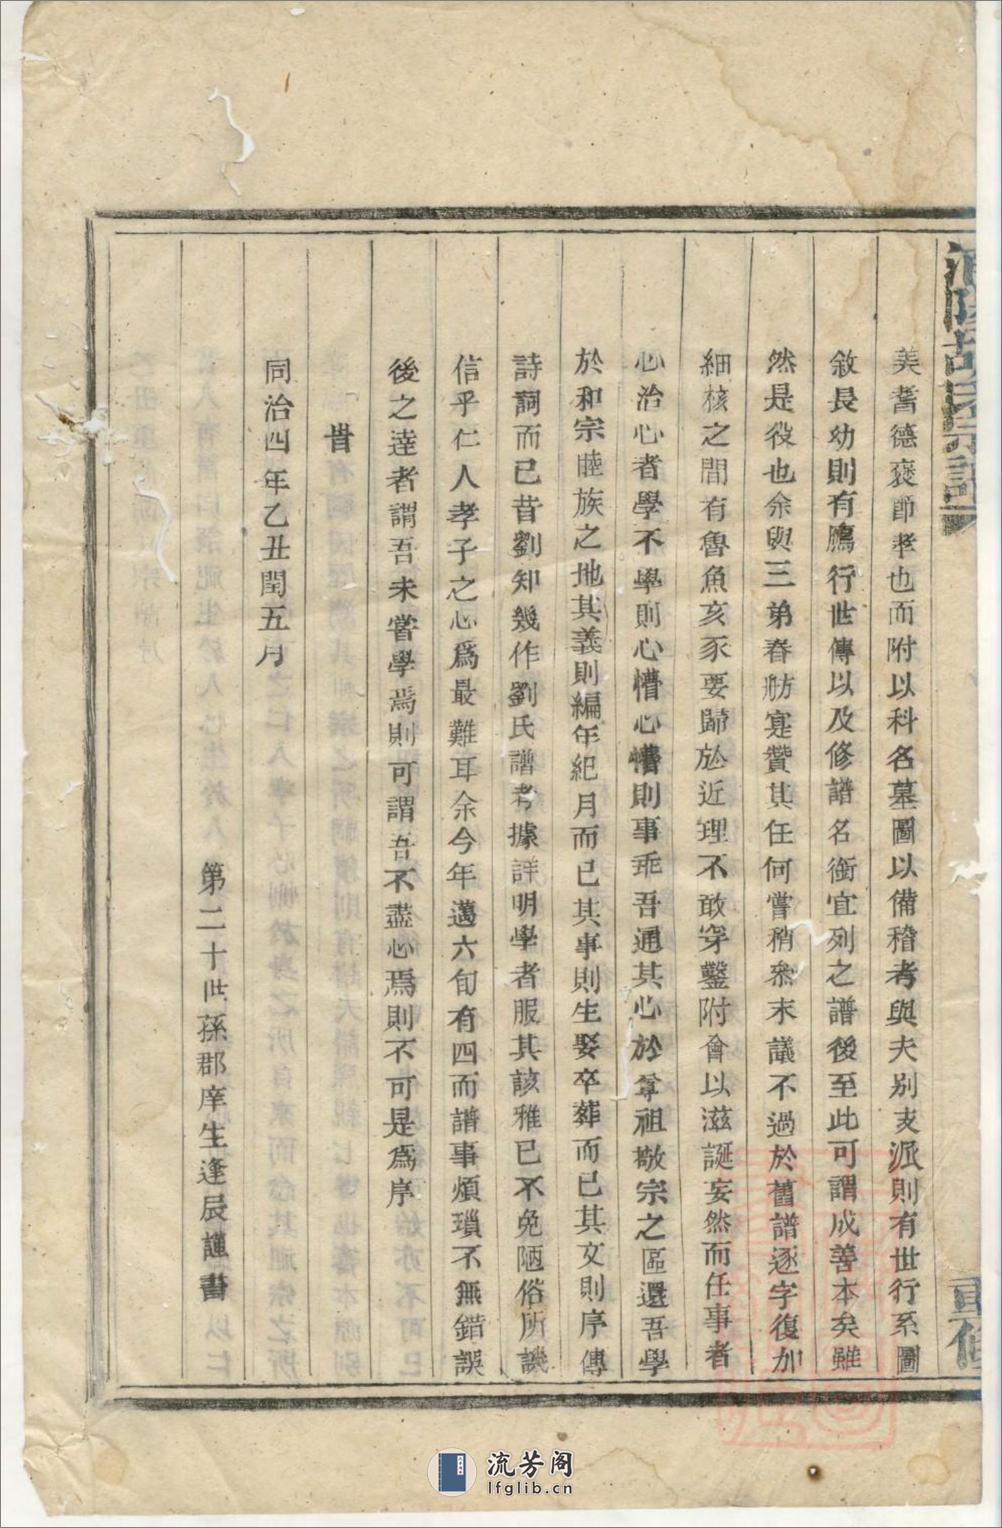 美耆德襃節孝也而附以科名墓圖以備稽考與夫别支派則有世行系圖
敘長幼則有鴈行世傳以及修譜名銜宜列之譜後至此可謂成善本矣雖
然是役也余與三弟春舫寔贊其任何嘗稍叅末議不過於舊譜逐字復加
細核之間有魯魚亥豕要歸於近理不敢穿鑿附會以滋誕妄然而任事者
心治心者學不學則心懵心懵則事乖吾通其心於尊祖敬宗之區還吾學
於和宗睦族之地其義則編年紀月而已其事則生娶卒葬而已其文則序傳
詩詞而已昔劉知幾作劉氏譜考據詳明學者服其該雅已不免陋俗所譏
信乎仁人孝子之心爲最難耳余今年邁六旬有四而譜事煩瑣不無錯誤
後之達者謂吾未嘗學焉則可謂吾不盡心焉則不可是爲序
旹
同治四年乙丑閏五月
第二十世孫郡庠生逢辰謹書
流芳阁
lfglib.cn